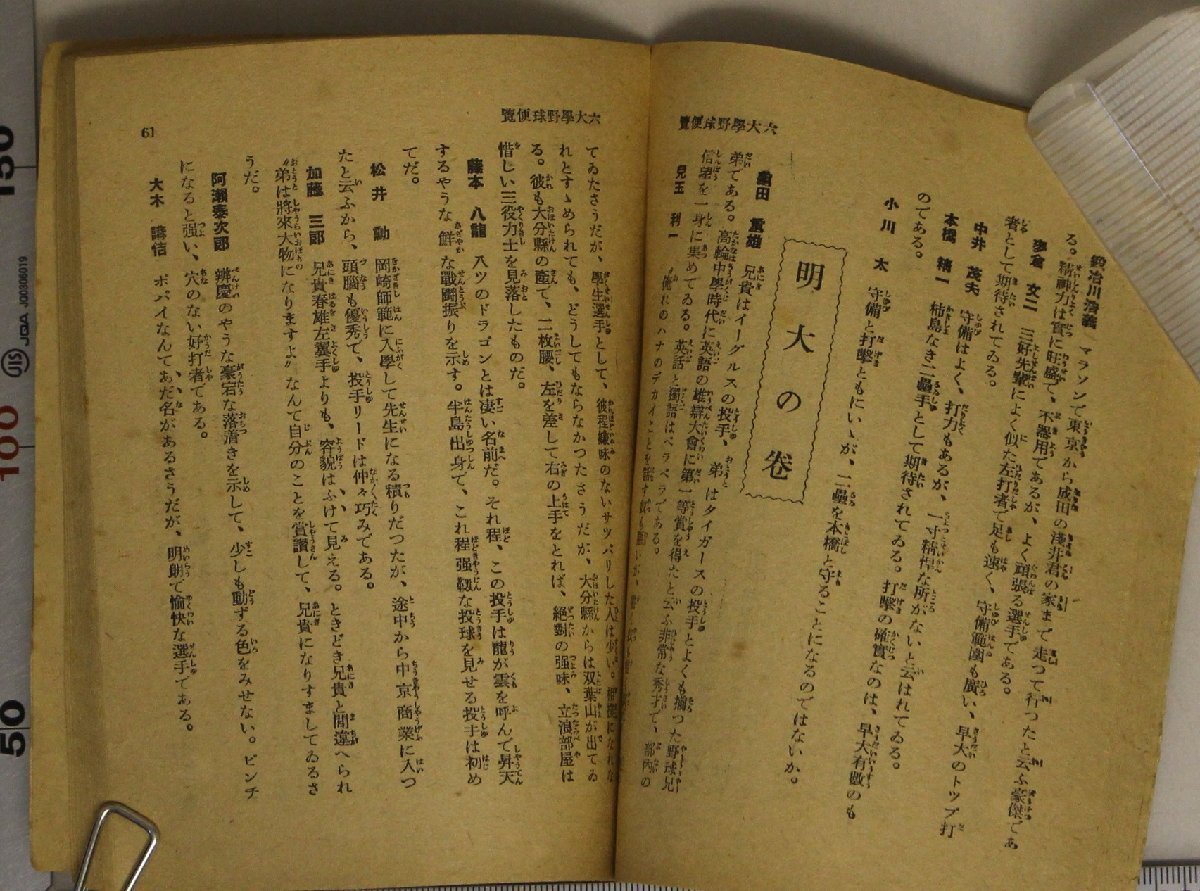 六大學野球便覽
鍛治川清義 マラソンで東京から成田の淺井君の家まで走つて行つたと云ふ豪傑であ
る。精神力は實に旺盛で、不器用であるが、よく頑張る選手である。
文二 三好先輩によく似た左打者で足も速く、守備範圍も廣い、早大のトツプ打
者として期待されてゐる。
中井 茂夫 守備はよく、打力もあるが、一寸精悍な所がないと云はれてゐる。
本橋 精一 柿島なき二壘手として期待されてゐる。打擊の確實なのは、早大有數のも
のである。
小川 太 守備と打擊ともにいゝが、二壘を本橋と守ることになるのではないか。
明大の卷
重雄 兄貴はイーグルスの投手、弟はタイガースの投手とよくも揃つた野球兄
弟である。高輪中學時代に英語の雄辯大會に第一等賞を得たと云ふ非常な秀才で、部內の
信望を一身に集めてゐる。英語と獨語はペラペラである。
兒玉 利一 俺れのハナのデカイことを
六大學野球便覽
てゐたさうだが、學生選手として、彼程嫌味のないサツパリした人は少い。
れとすゝめられても、どうしてもならなかつたさうだが、大分縣からは双葉山が出てゐ
る。彼も大分縣の產で、二枚腰、左を差して右の上手をとれば、絕對の强味、立浪部屋は
惜しい三役力士を見落したものだ。
藤本 八龍 八ツのドラゴンとは凄い名前だ。それ程、この投手は龍が雲を呼んで昇天
するやうな鮮な戰鬪振りを示す。半島出身で、これ程强靱な投球を見せる投手は初め
てだ。
松井 勳 岡崎師範に入學して先生になる積りだつたが、途中から中京商業に入つ
たと云ふから、頭腦も優秀で、投手リードは仲々巧みである。
加藤 三郎 兄貴春雄左翼手よりも、容貌はふけて見える。ときどき兄貴と間違へられ
弟は將來大物になりますよ、なんて自分のことを賞讃して、兄貴になりすましてゐるさ
うだ。
阿瀨泰次郎 辨慶のやうな豪宕な落着きを示して、少しも動ずる色をみせない。ピンチ
になると强い、穴のない好打者である。
大木 謙信 ポパイなんてあだ名があるさうだが、明朗で愉快な選手である。
61
50
100
150
JIS
JQA J0306019